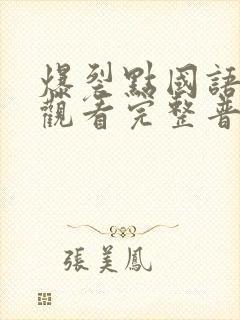 爆裂點國語
觀看完整普
張美鳳